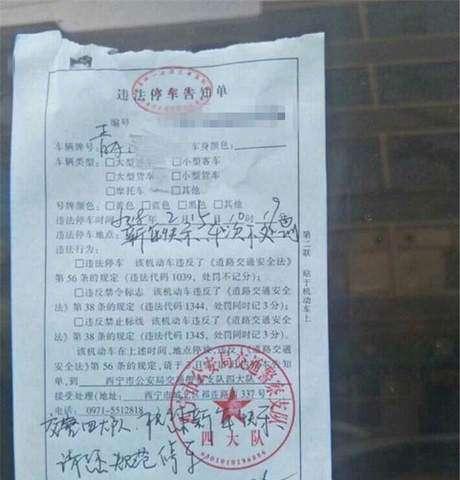 违法停车告知单
编号
车辆牌号: 青 车身颜色:
车辆类型: □大型客车 □小型客车
□大型货车 □小型货车
□摩托车 □其他
号牌颜色: □黄色 □蓝色 □黑色 □其他
违法停车时间: 年 2 月 15 日 10 时
违法停车地点: 新年快乐!本次不处罚
违法行为:
□违法停车 该机动车违反了《道路交通安全法》
第56条的规定(违法代码1039,处罚不记分);
□违反禁令标志 该机动车违反了《道路交通安全
法》第38条的规定(违法代码1344,处罚同时记3分);
□违反禁止标线 该机动车违反了《道路交通安全
法》第38条的规定(违法代码1345,处罚同时记3分);
该机动车在上述时间、地点停放,违反《道路交通安全
法》第56条的规定,请于 日持本告知
单,到 西宁市公安局交通警察支队四大队
接受处理(地址: 西宁市城北区祁连路337号
电话: 0971-5512818
交警四大队,祝您新年快乐
请您规范停车
第二联 贴于机动车上
西宁市公安局交通警察支队
四大队